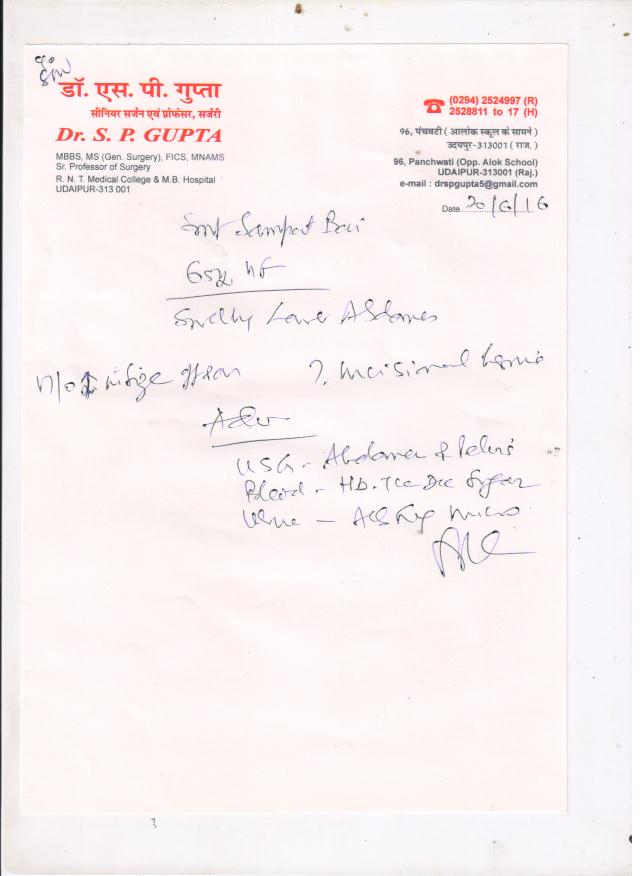 डॉ. एस. पी. गुप्ता
सीनियर सर्जन एवं प्रोफेसर, सर्जरी
Dr. S. P. GUPTA
MBBS, MS (Gen. Surgery), FICS, MNAMS
Sr. Professor of Surgery
R. N. T. Medical College & M.B. Hospital
UDAIPUR-313 001
(0294) 2524997 (R)
2528811 to 17 (H)
96, पंचवटी ( आलोक स्कूल के सामने )
उदयपुर-313001 ( राज. )
96, Panchwati (Opp. Alok School)
UDAIPUR-313001 (Raj.)
e-mail : drspgupta5@gmail.com
Date 20/6/16
Smt Sampat Bai
Swelling Lower Abdomen
? Incisional hernia
Adv
USG - Abdomen & Pelvis
Blood - Hb. TLC DLC Sugar
Urine - Alb Sug Micro